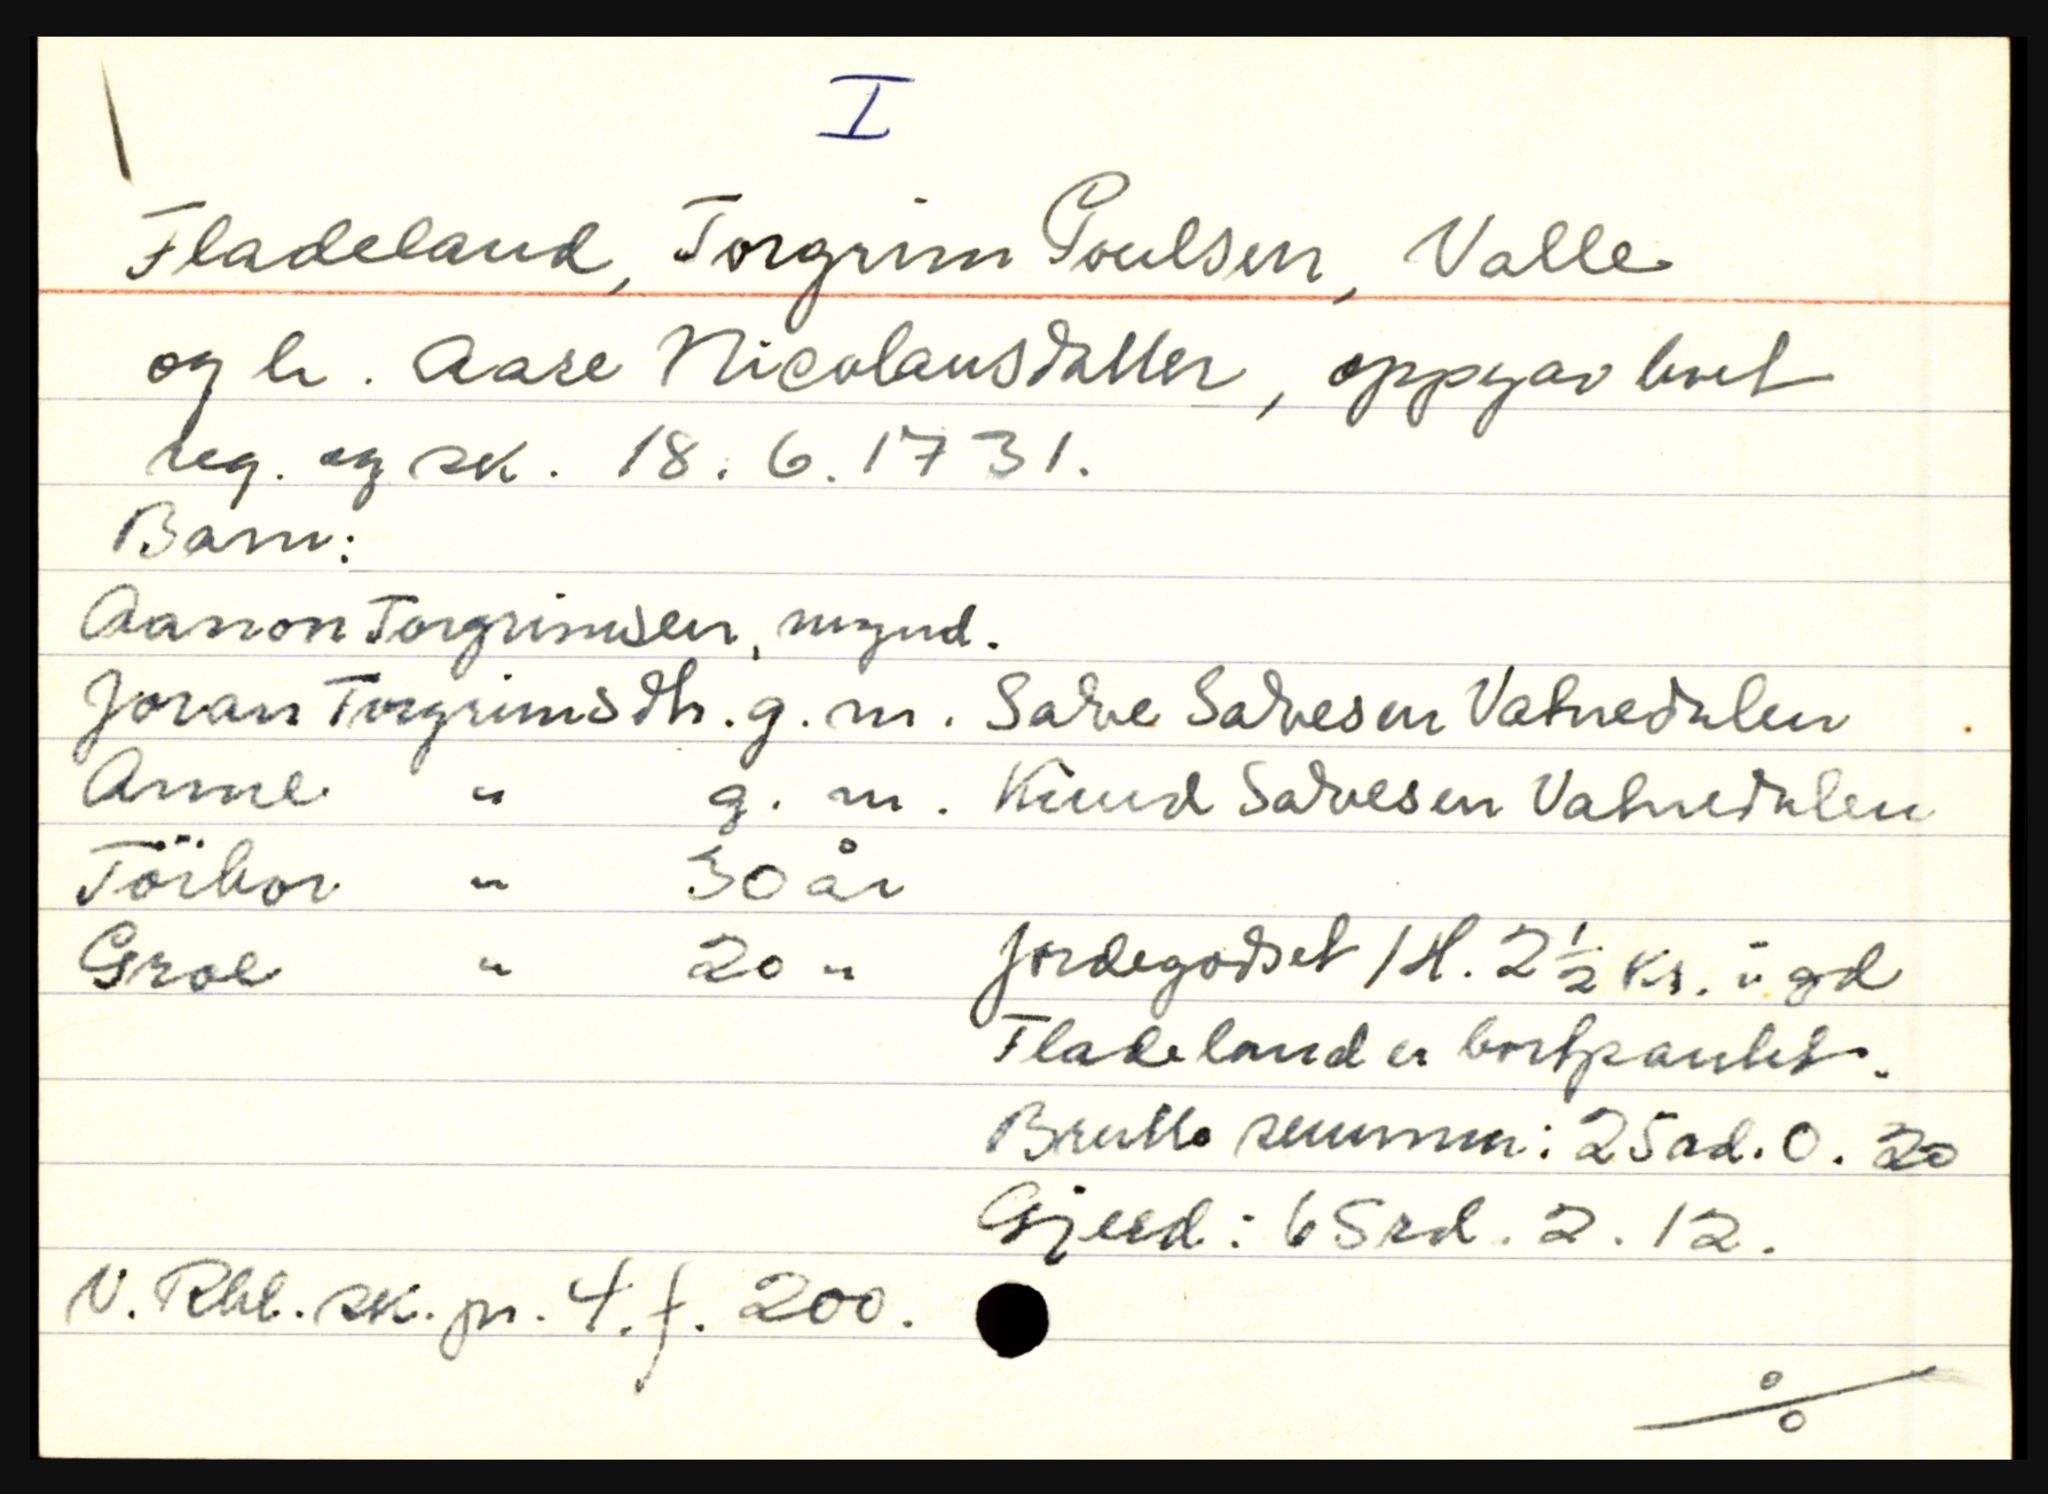 I
Fladeland, Torgrim Poulsen, Valle
og h. Aase Nicolausdatter, oppgav boet
reg. og sk. 18.6.1731.
Barn:
Aanon Torgrimsen, mynd.
Joran Torgrimsdtr. g. m. Salve Salvesen Vatnedalen
Anne " g. m. Knud Salvesen Vatnedalen
Törbor " 30 år
Groe " 20 " Jordegodset 1 H. 2 1/2 Ks. i gd
Fladeland er bortpantet.
Brutto summen: 25 rd. 0. 20
Gjeld: 65 rd. 2. 12.
N. Rbl. sk. pr. 4. f. 200.
%